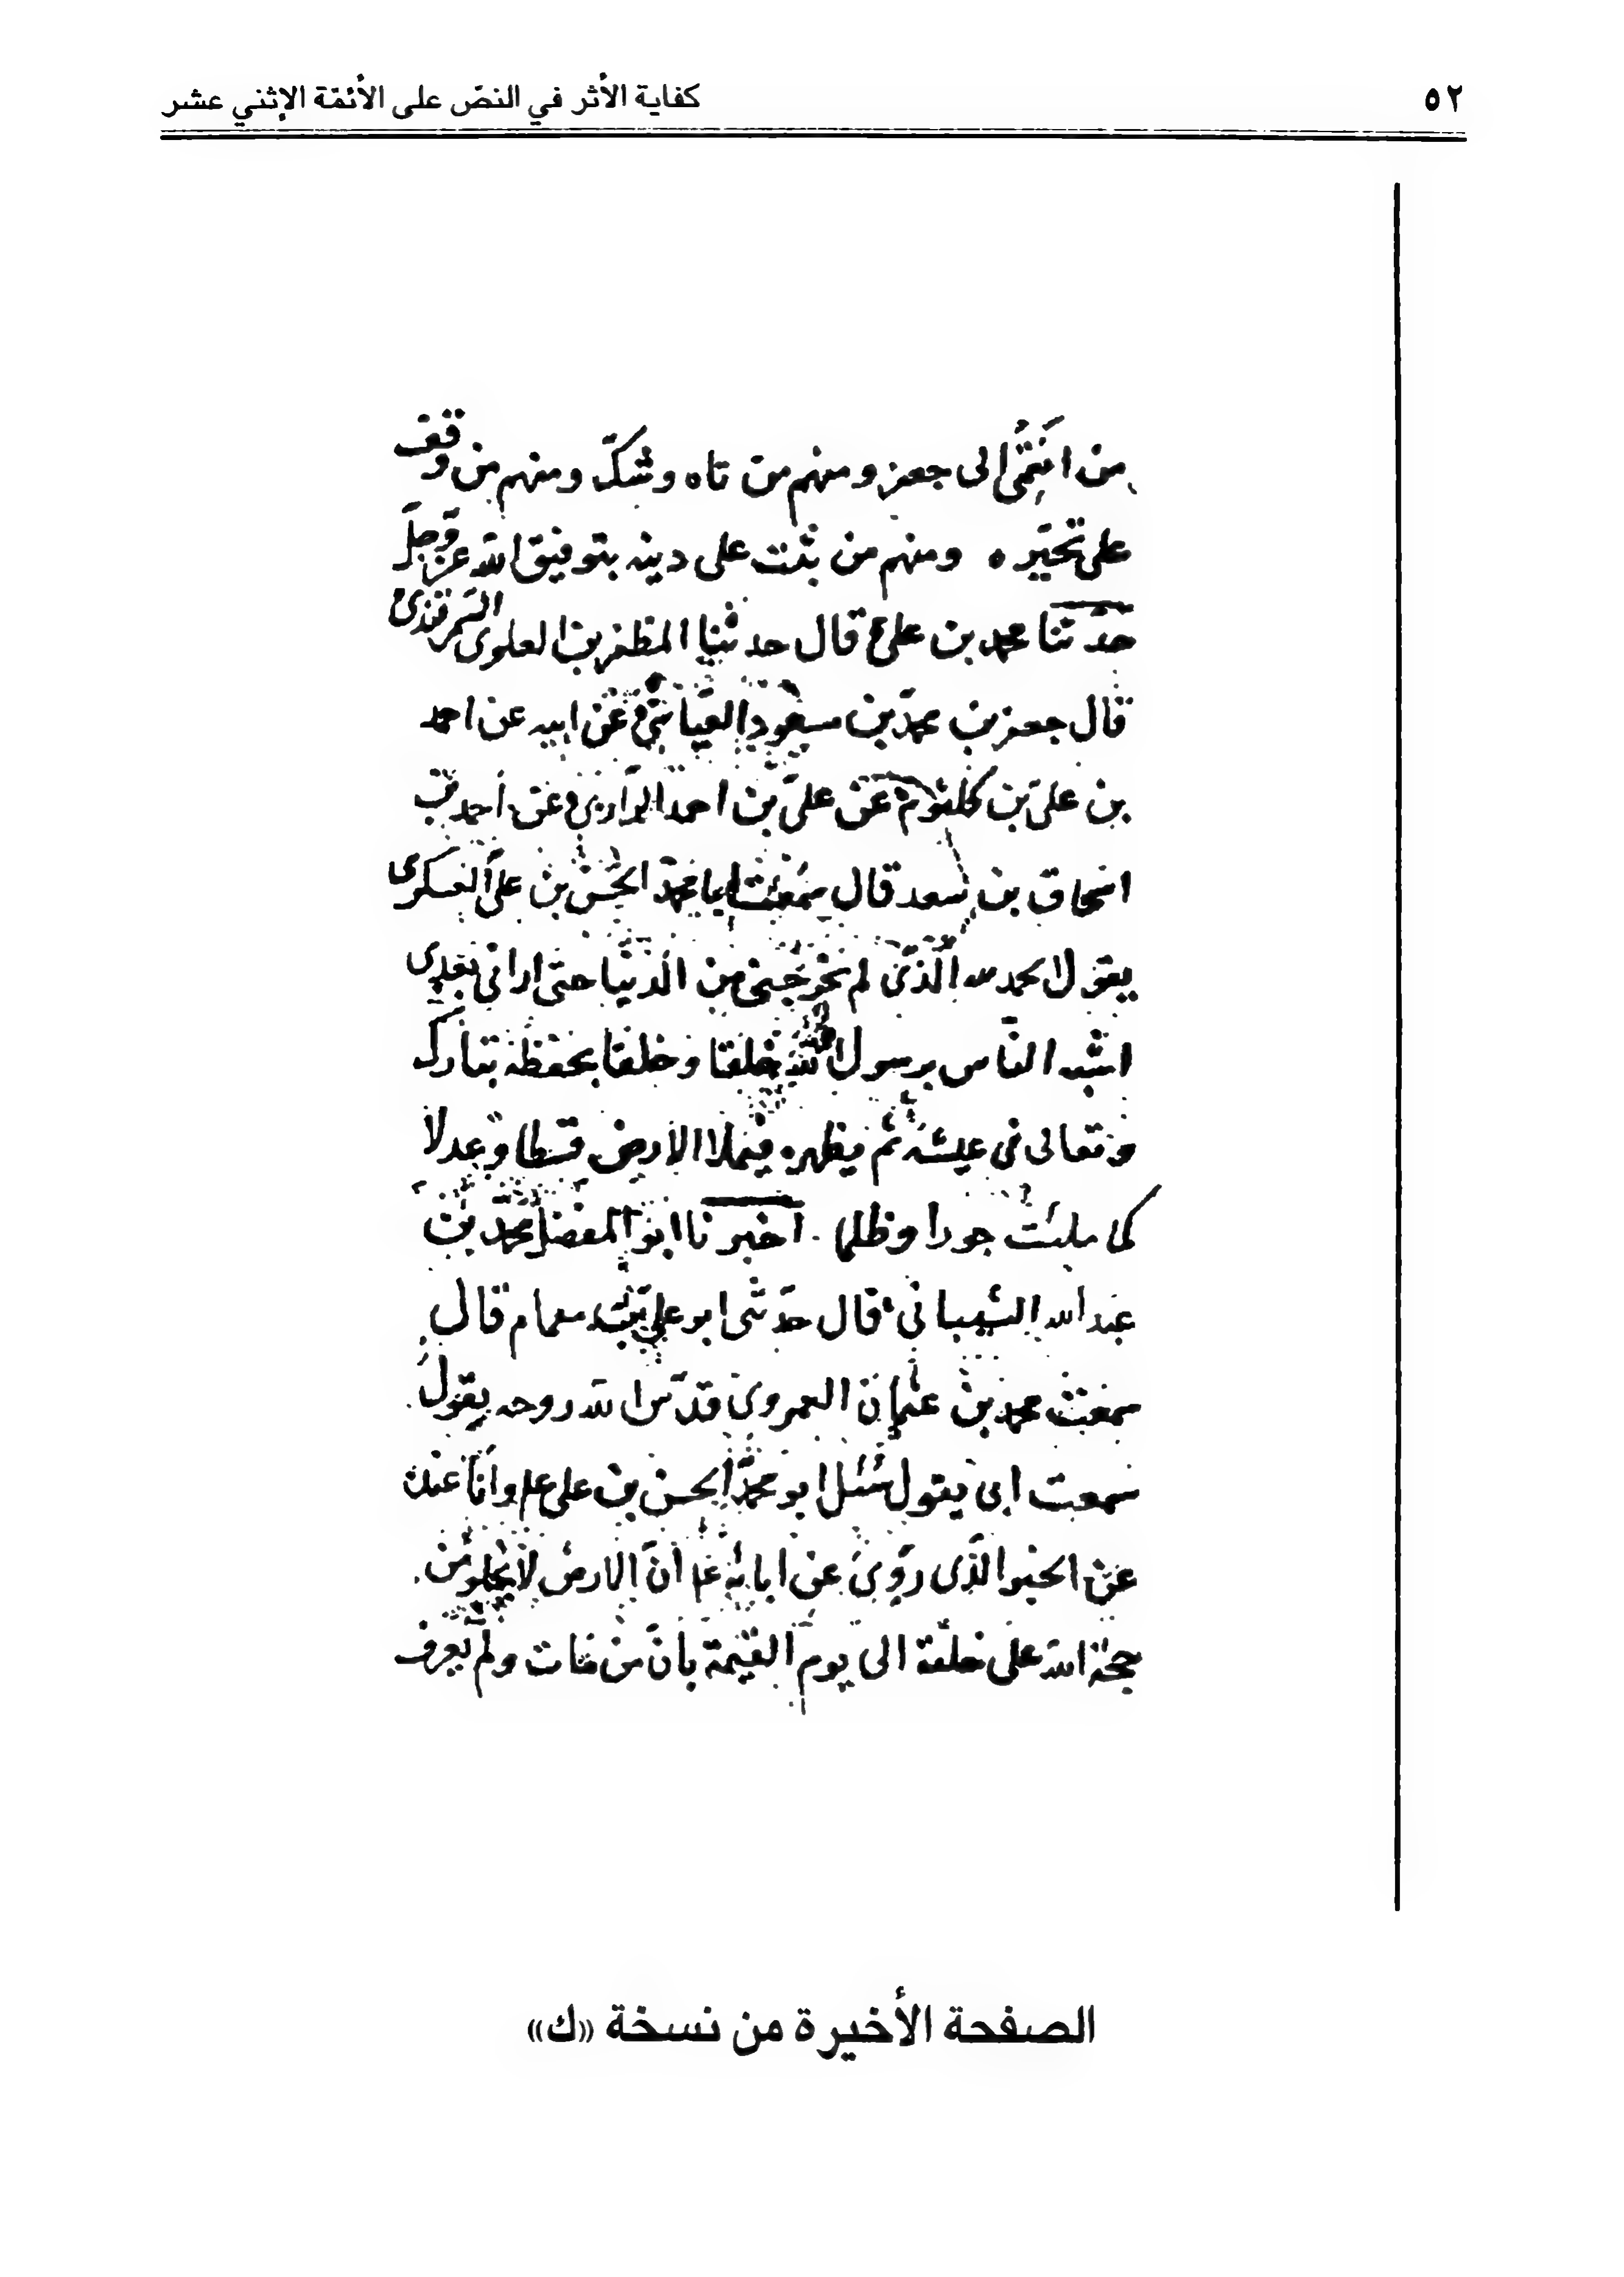 ٥٢
كفاية الأثر في النصّ على الأئمّة الإثني عشر
من انتمى الى جعفر ومنهم من تاه وشكّ ومنهم من وقف
على تحيّره ومنهم من ثبت على دينه بتوفيق الله عزّ وجلّ
حدّثنا محمد بن على ع قال حدثنا المظفر بن العلوى السمرقندى
قال جعفر بن محمد بن مسعود العياشى عن ابيه عن احمد
بن على بن كلثوم عن على بن احمد الرازى عن احمد بن
اسحاق بن سعد قال سمعت ابا محمد الحسن بن على العسكرى
يقول الحمد لله الّذى لم يخرجنى من الدنيا حتى ارانى بعدى
اشبه الناس برسول الله خلقا وخلقا يحفظه تبارك
وتعالى فى غيبته ثم يظهره فيملا الارض قسطا وعدلا
كما ملئت جورا وظلما اخبرنا ابو المفضل محمد بن
عبد الله الشيبانى قال حدّثنى ابو على بن همام قال
سمعت محمد بن عثمان العمروى قدّس الله روحه يقول
سمعت ابى يقول سئل ابو محمد الحسن بن على علم وانا عنده
عن الخبر الّذى روى عن ابائه علم انّ الارض لا يخلو من
حجة الله على خلقه الى يوم القيمة بانّ من مات ولم يعرف
الصفحة الأخيرة من نسخة «ك»